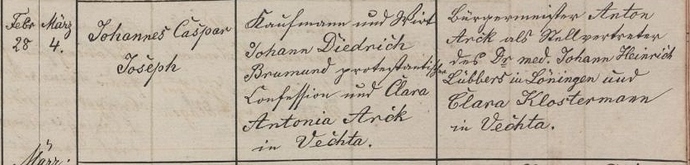 Febr März
28 4.
Johannes Caspar
Joseph
Kaufmann und Wirt
Johann Diedrich
Bramund protestantischer
Confession und Clara
Antonia Arck
in Vechta.
Bürgermeister Anton
Arck als Stellvertreter
des Dr med. Johann Heinrich
Lübbers in Löningen und
Clara Klostermann
in Vechta.
März.